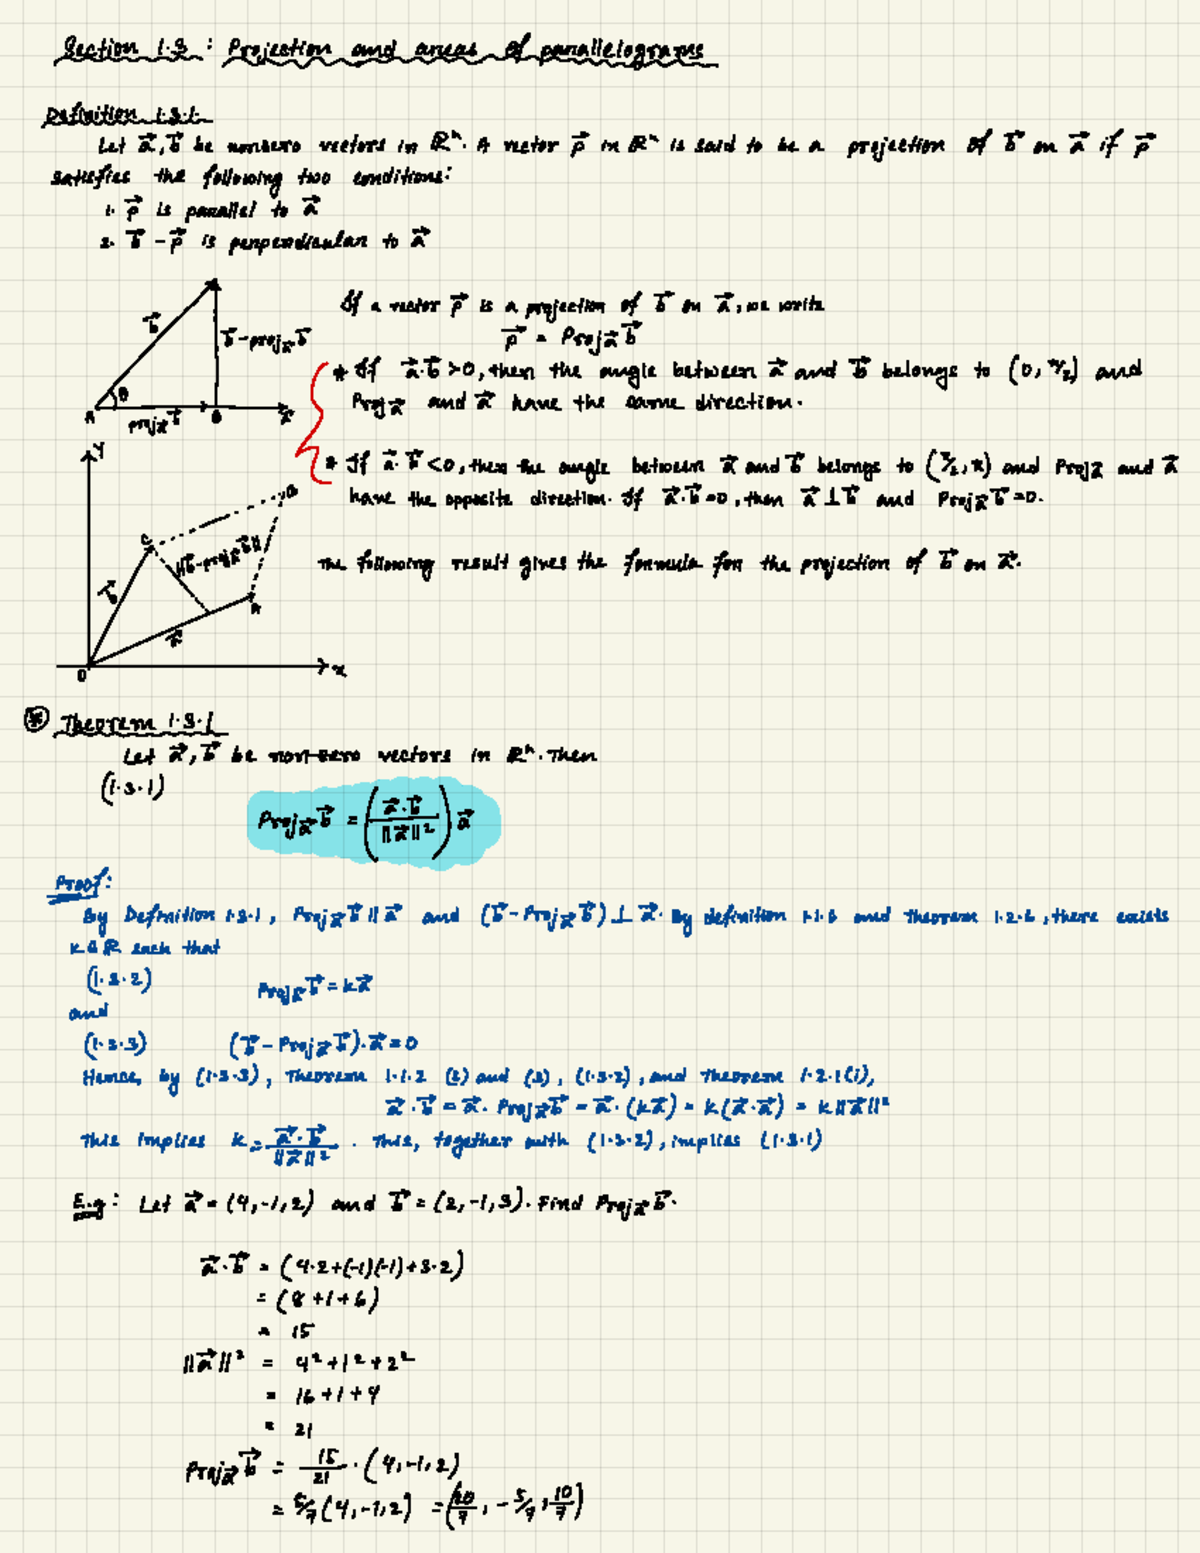 Section 1.3 : Projection and areas of parallelograms
Definition 1.3.1.
Let a⃗, b⃗ be nonzero vectors in ℝⁿ. A vector p⃗ in ℝⁿ is said to be a projection of b⃗ on a⃗ if p⃗
satisfies the following two conditions:
1. p⃗ is parallel to a⃗
2. b⃗ - p⃗ is perpendicular to a⃗
b⃗
b⃗-proj_a⃗ b⃗
θ
A
proj_a⃗ b⃗
B
a⃗
If a vector p⃗ is a projection of b⃗ on a⃗, we write
p⃗ = Proj_a⃗ b⃗
* If a⃗·b⃗ >0, then the angle between a⃗ and b⃗ belongs to (0, π/2) and
Proj_a⃗ and a⃗ have the same direction.
* If a⃗·b⃗ <0, then the angle between a⃗ and b⃗ belongs to (π/2, π) and Proj_a⃗ and a⃗
have the opposite direction. If a⃗·b⃗=0, then a⃗ ⊥ b⃗ and Proj_a⃗ b⃗=0.
y
B
C
||b⃗-proj_a⃗ b⃗||
b⃗
A
a⃗
0
x
The following result gives the formula for the projection of b⃗ on a⃗.
* Theorem 1.3.1
Let a⃗, b⃗ be non-zero vectors in ℝⁿ. Then
(1.3.1)
Proj_a⃗ b⃗ = (a⃗·b⃗ / ||a⃗||²) a⃗
Proof:
By Definition 1.3.1, Proj_a⃗ b⃗ || a⃗ and (b⃗ - Proj_a⃗ b⃗) ⊥ a⃗. By definition 1.1.6 and theorem 1.2.6, there exists
k ∈ ℝ such that
(1.3.2) Proj_a⃗ b⃗ = k a⃗
and
(1.3.3) (b⃗ - Proj_a⃗ b⃗)·a⃗ = 0
Hence, by (1.3.3), Theorem 1.1.2 (2) and (3), (1.3.2), and Theorem 1.2.1(i),
a⃗·b⃗ = a⃗·Proj_a⃗ b⃗ = a⃗·(k a⃗) = k(a⃗·a⃗) = k||a⃗||²
This implies k = a⃗·b⃗ / ||a⃗||² . This, together with (1.3.2), implies (1.3.1)
E.g: Let a⃗ = (4,-1,2) and b⃗ = (2,-1,3). Find Proj_a⃗ b⃗.
a⃗·b⃗ = (4·2+(-1)(-1)+3·2)
= (8+1+6)
= 15
||a⃗||² = 4²+1²+2²
= 16+1+4
= 21
Proj_a⃗ b⃗ = 15/21 · (4,-1,2)
= 5/7 (4,-1,2) = (20/7, -5/7, 10/7)